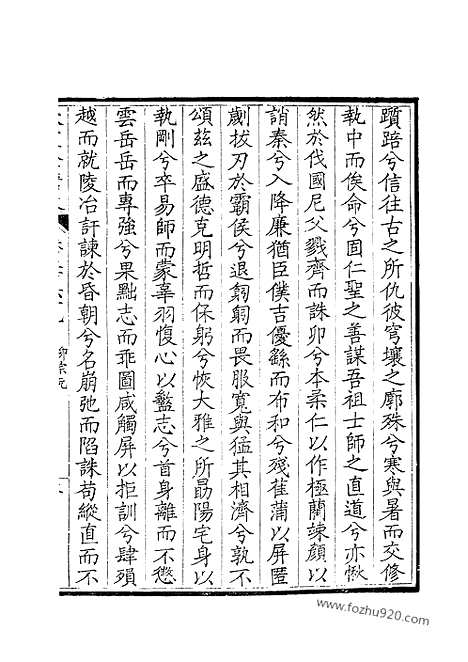 躓踣兮信往古之所仇彼穹壤之廓殊兮寒與暑而交修
執中而俟命兮固仁聖之善謀吾祖士師之直道兮亦愀
然於伐國尼父戮齊而誅卯兮本柔仁以作極蘭竦顏以
誚秦兮入降廉猶臣僕吉優繇而布和兮殘萑蒲以屏匿
劌拔刃於霸侯兮退匑匑而畏服寬與猛其相濟兮孰不
頌茲之盛德克明哲而保躬兮恢大雅之所勗陽宅身以
執剛兮卒易師而蒙辜羽愎心以盭志兮首身離而不懲
雲岳岳而專強兮果黜志而乖圖咸觸屏以拒訓兮肆殞
越而就陵冶訐諫於昏朝兮名崩弛而陷誅苟縱直而不
柳宗元
www.fozhu920.com